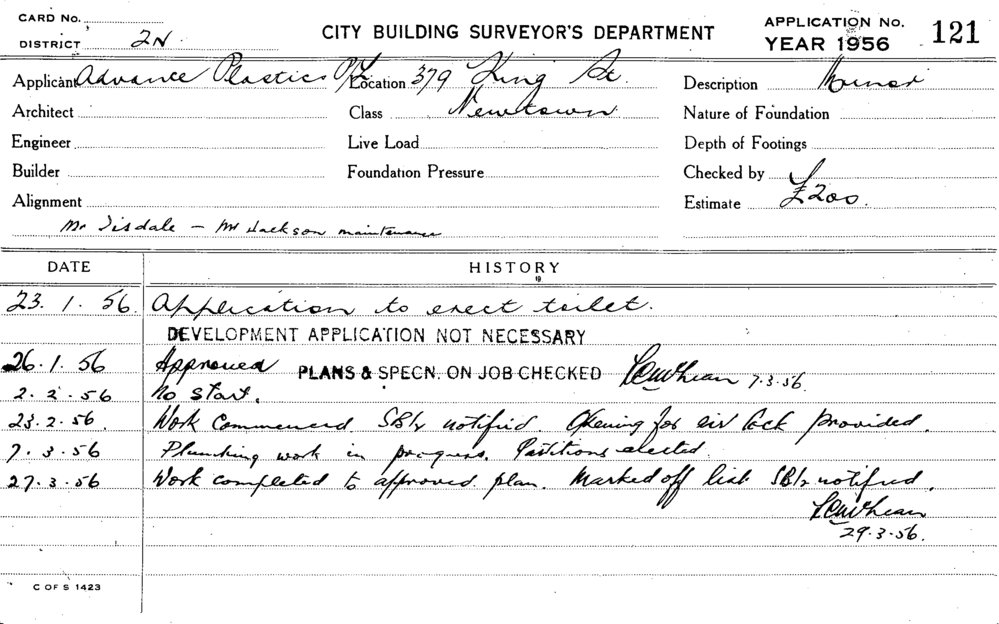 CARD No.
DISTRICT 2N
CITY BUILDING SURVEYOR'S DEPARTMENT
APPLICATION No. 121
YEAR 1956
Applicant Advance Plastics P/L Location 379 King St. Description Minor
Architect Class Newtown Nature of Foundation
Engineer Live Load Depth of Footings
Builder Foundation Pressure Checked by
Alignment Estimate £200.
Mr Tisdale - Mr Jackson maintenance
DATE HISTORY
19
23. 1. 56. Application to erect toilet.
DEVELOPMENT APPLICATION NOT NECESSARY
26. 1. 56 Approved PLANS & SPECN. ON JOB CHECKED 7.3.56.
2. 2. 56 No start.
23. 2. 56. Work Commenced. notified. Opening for air lock provided.
7. 3. 56 Plumbing work in progress. Partitions erected.
27. 3. 56 Work completed to approved plan. Marked off list notified.
29.3.56.
C OF S 1423